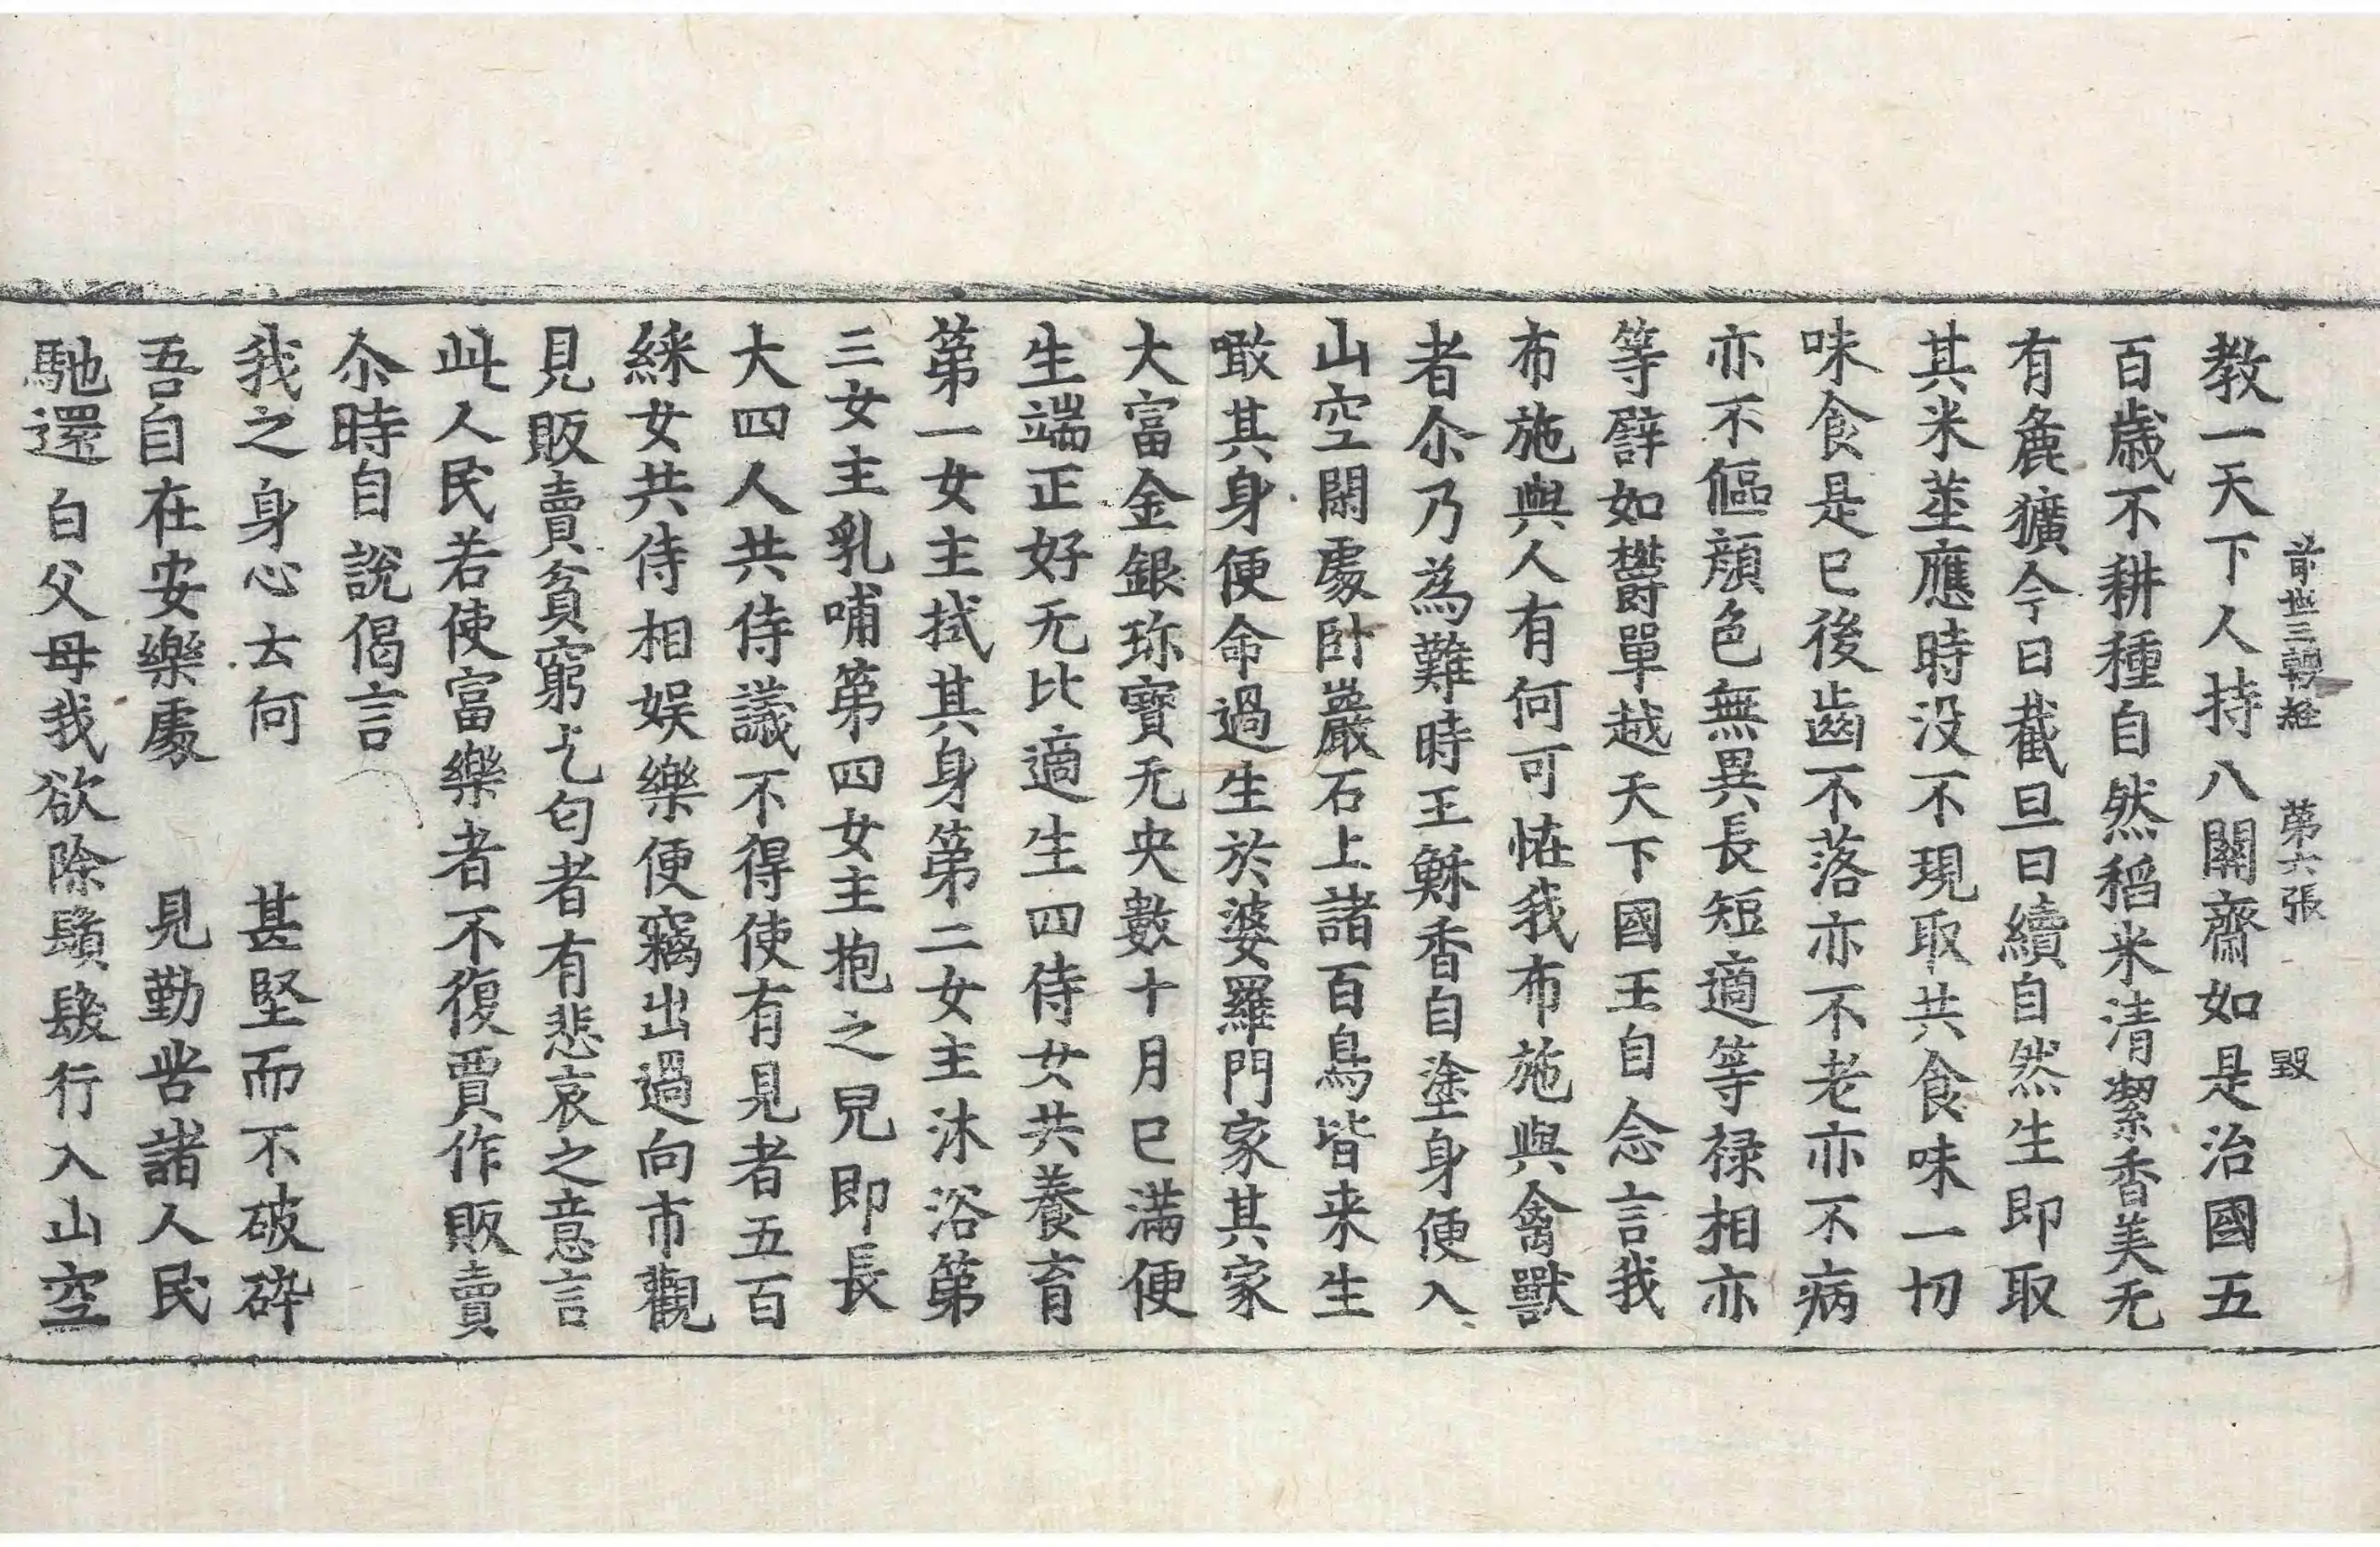 前世三轉経　第六張　毀
教一天下人持八關齋如是治國五
百歳不耕種自然稻米清潔香美无
有麁獷今日截旦日續自然生即取
其米莖應時没不現取共食味一切
味食是已後齒不落亦不老亦不病
亦不傴顔色無異長短適等禄相亦
等譬如欝單越天下國王自念言我
布施與人有何可恠我布施與禽獸
者尒乃為難時王穌香自塗身便入
山空閑處卧巖石上諸百鳥皆来生
噉其身便命過生於婆羅門家其家
大富金銀珎寳无央數十月已滿便
生端正好无比適生四侍女共養育
第一女主拭其身第二女主沐浴第
三女主乳哺第四女主抱之兒即長
大四人共侍議不得使有見者五百
綵女共侍相娱樂便竊出過向市觀
見販賣貧窮乞匄者有悲哀之意言
此人民若使富樂者不復賈作販賣
尒時自說偈言
我之身心去何　甚堅而不破碎
吾自在安樂處　見勤苦諸人民
馳還白父母我欲除鬚髮行入山空